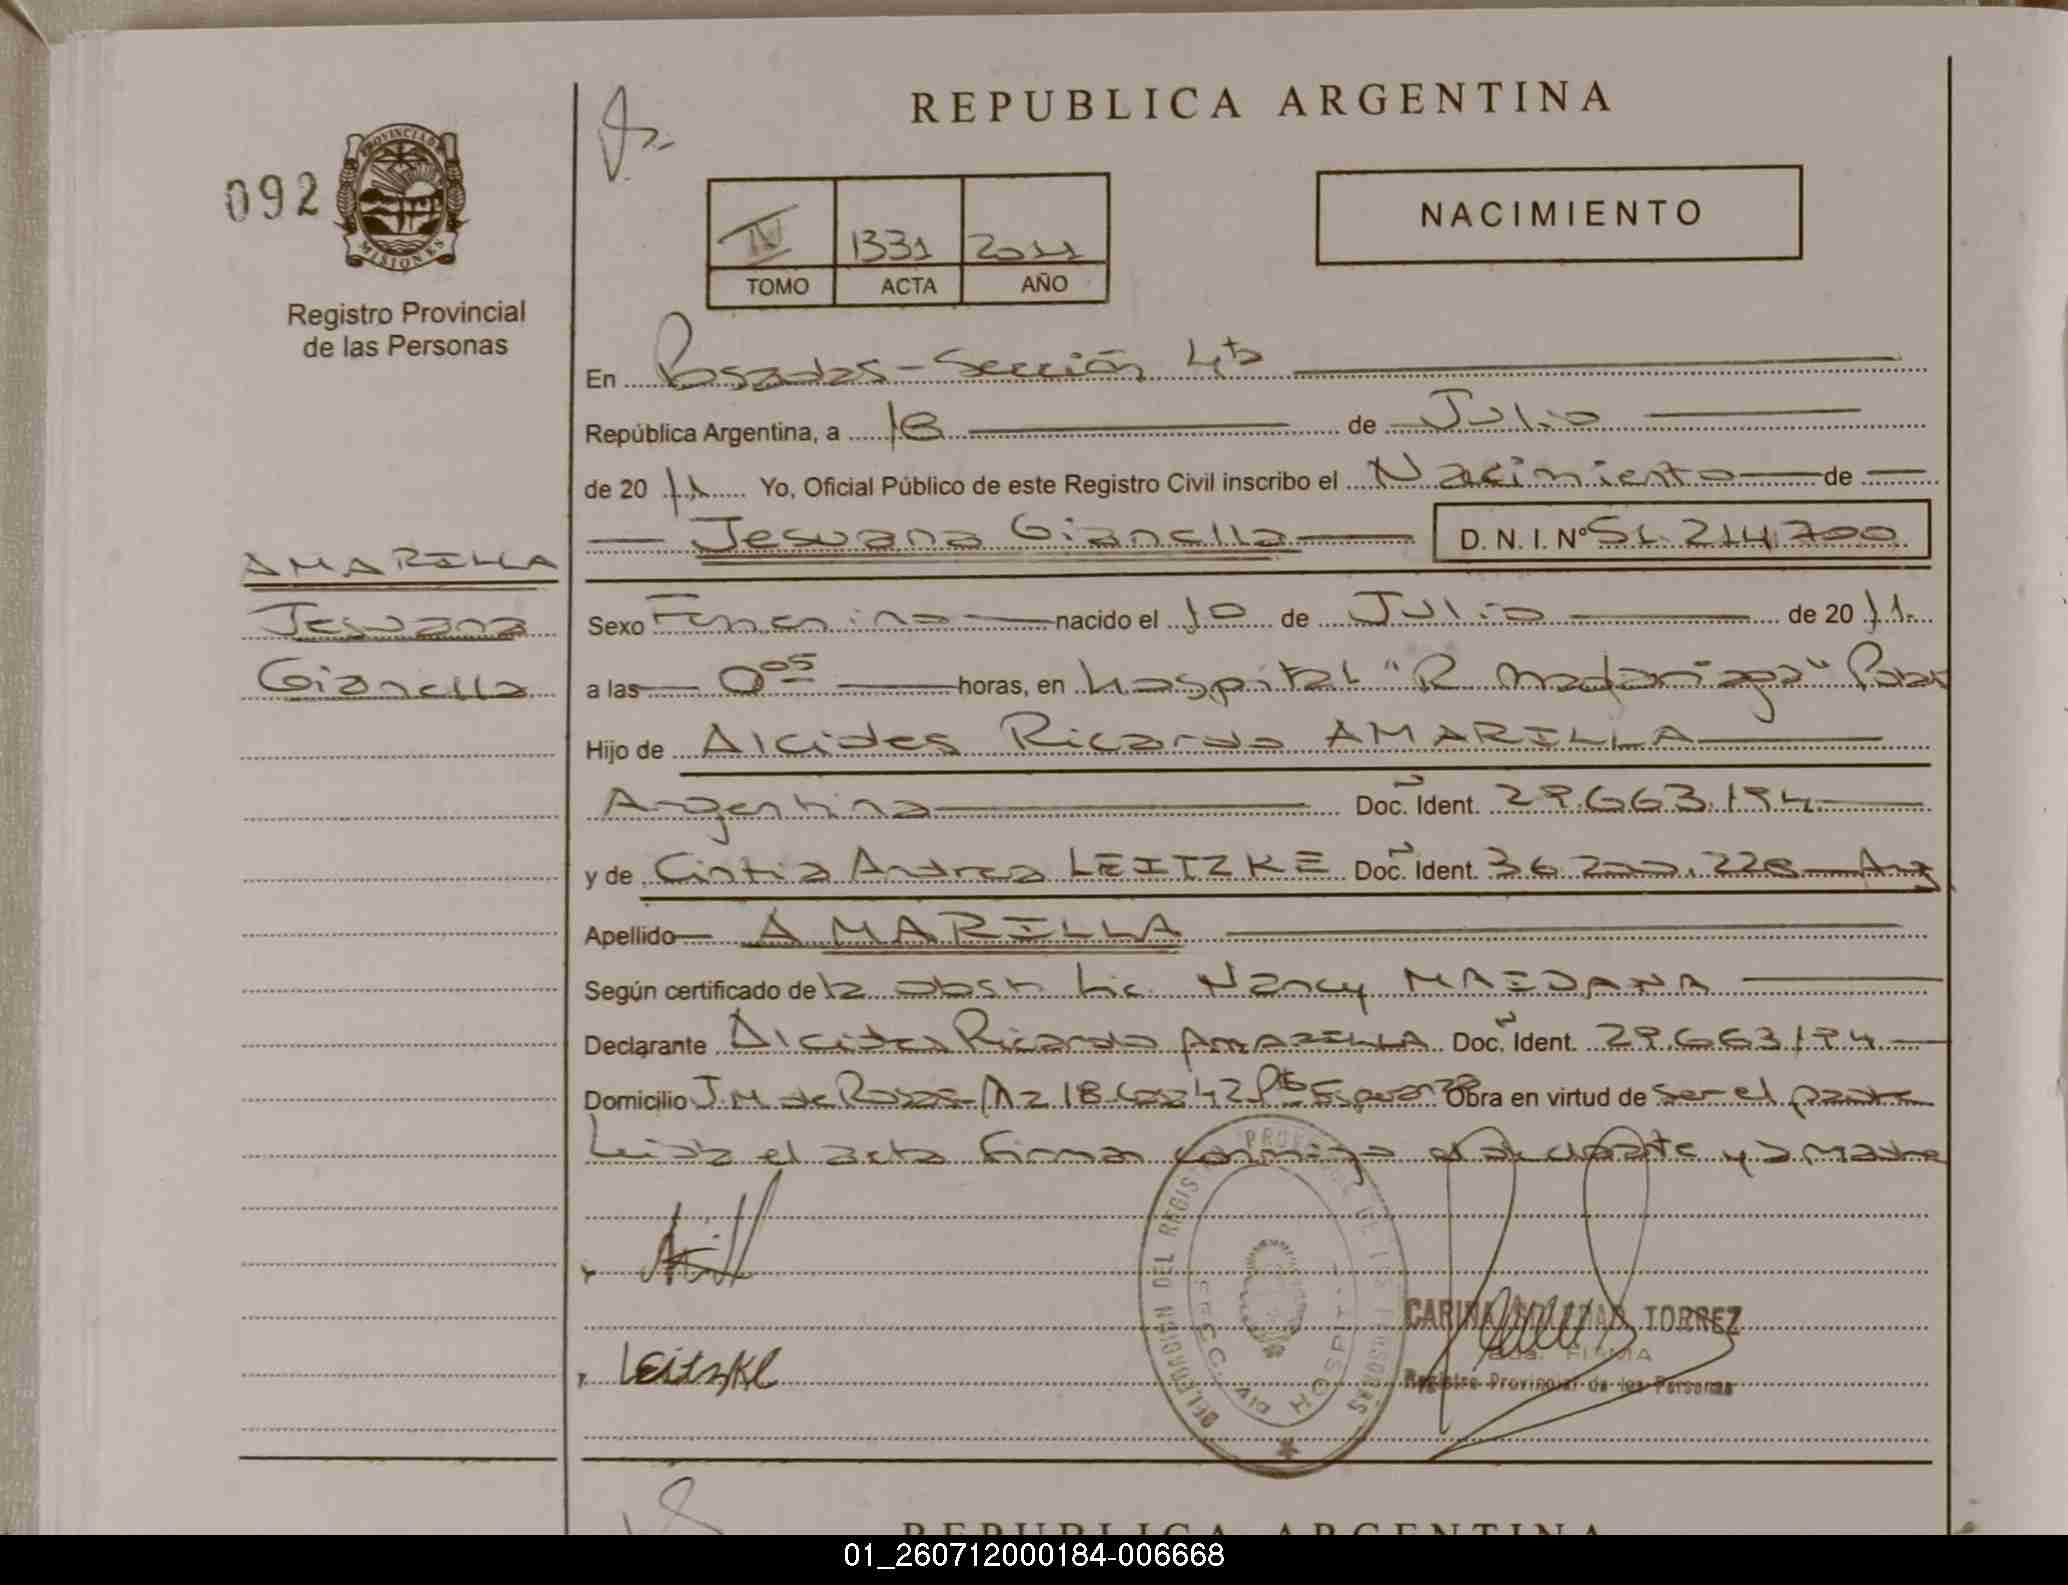 REPUBLICA ARGENTINA
092
PROVINCIA DE
MISIONES
Registro Provincial
de las Personas
NACIMIENTO
IV 1331 2011
TOMO ACTA AÑO
En Posadas - Sección 4ta
República Argentina, a 18 de Julio
de 20 11 Yo, Oficial Público de este Registro Civil inscribo el Nacimiento de
Jesuana Gianella D. N. I. Nº 51.214.700
AMARILLA
Jesuana
Gianella
Sexo Femenino nacido el 10 de Julio de 20 11
a las 0 05 horas, en Hospital "R Madariaga"
Hijo de Alcides Ricardo AMARILLA
Argentina Doc. Ident. 29.663.194
y de Cintia Andrea LEITZKE Doc. Ident. 36.200.228 Arg
Apellido AMARILLA
Según certificado de la obst. Lic. Nancy MAIDANA
Declarante Alcides Ricardo AMARILLA Doc. Ident. 29.663.194
Domicilio J.M. de Rosas Mz 18 casa 42 Obra en virtud de ser el padre
Leida el acta firman conmigo el declarante y la madre
Leitzke
DELEGACION DEL REGISTRO PROVINCIAL DE LAS PERSONAS
CARINA SOLEDAD TORREZ
FIRMA
Registro Provincial de las Personas
REPUBLICA ARGENTINA
01_260712000184-006668